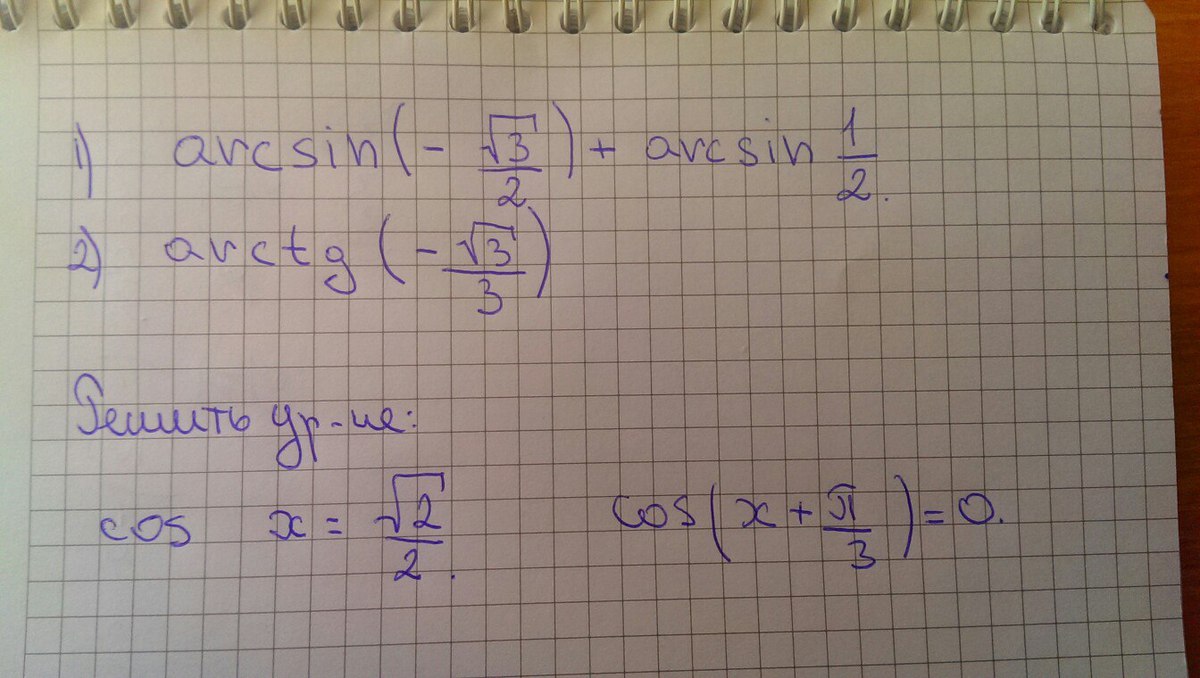 1) arcsin(-√3/2) + arcsin 1/2.
2) arctg(-√3/3)
Решить ур-ие:
cos x = √2/2. cos(x + π/3) = 0.